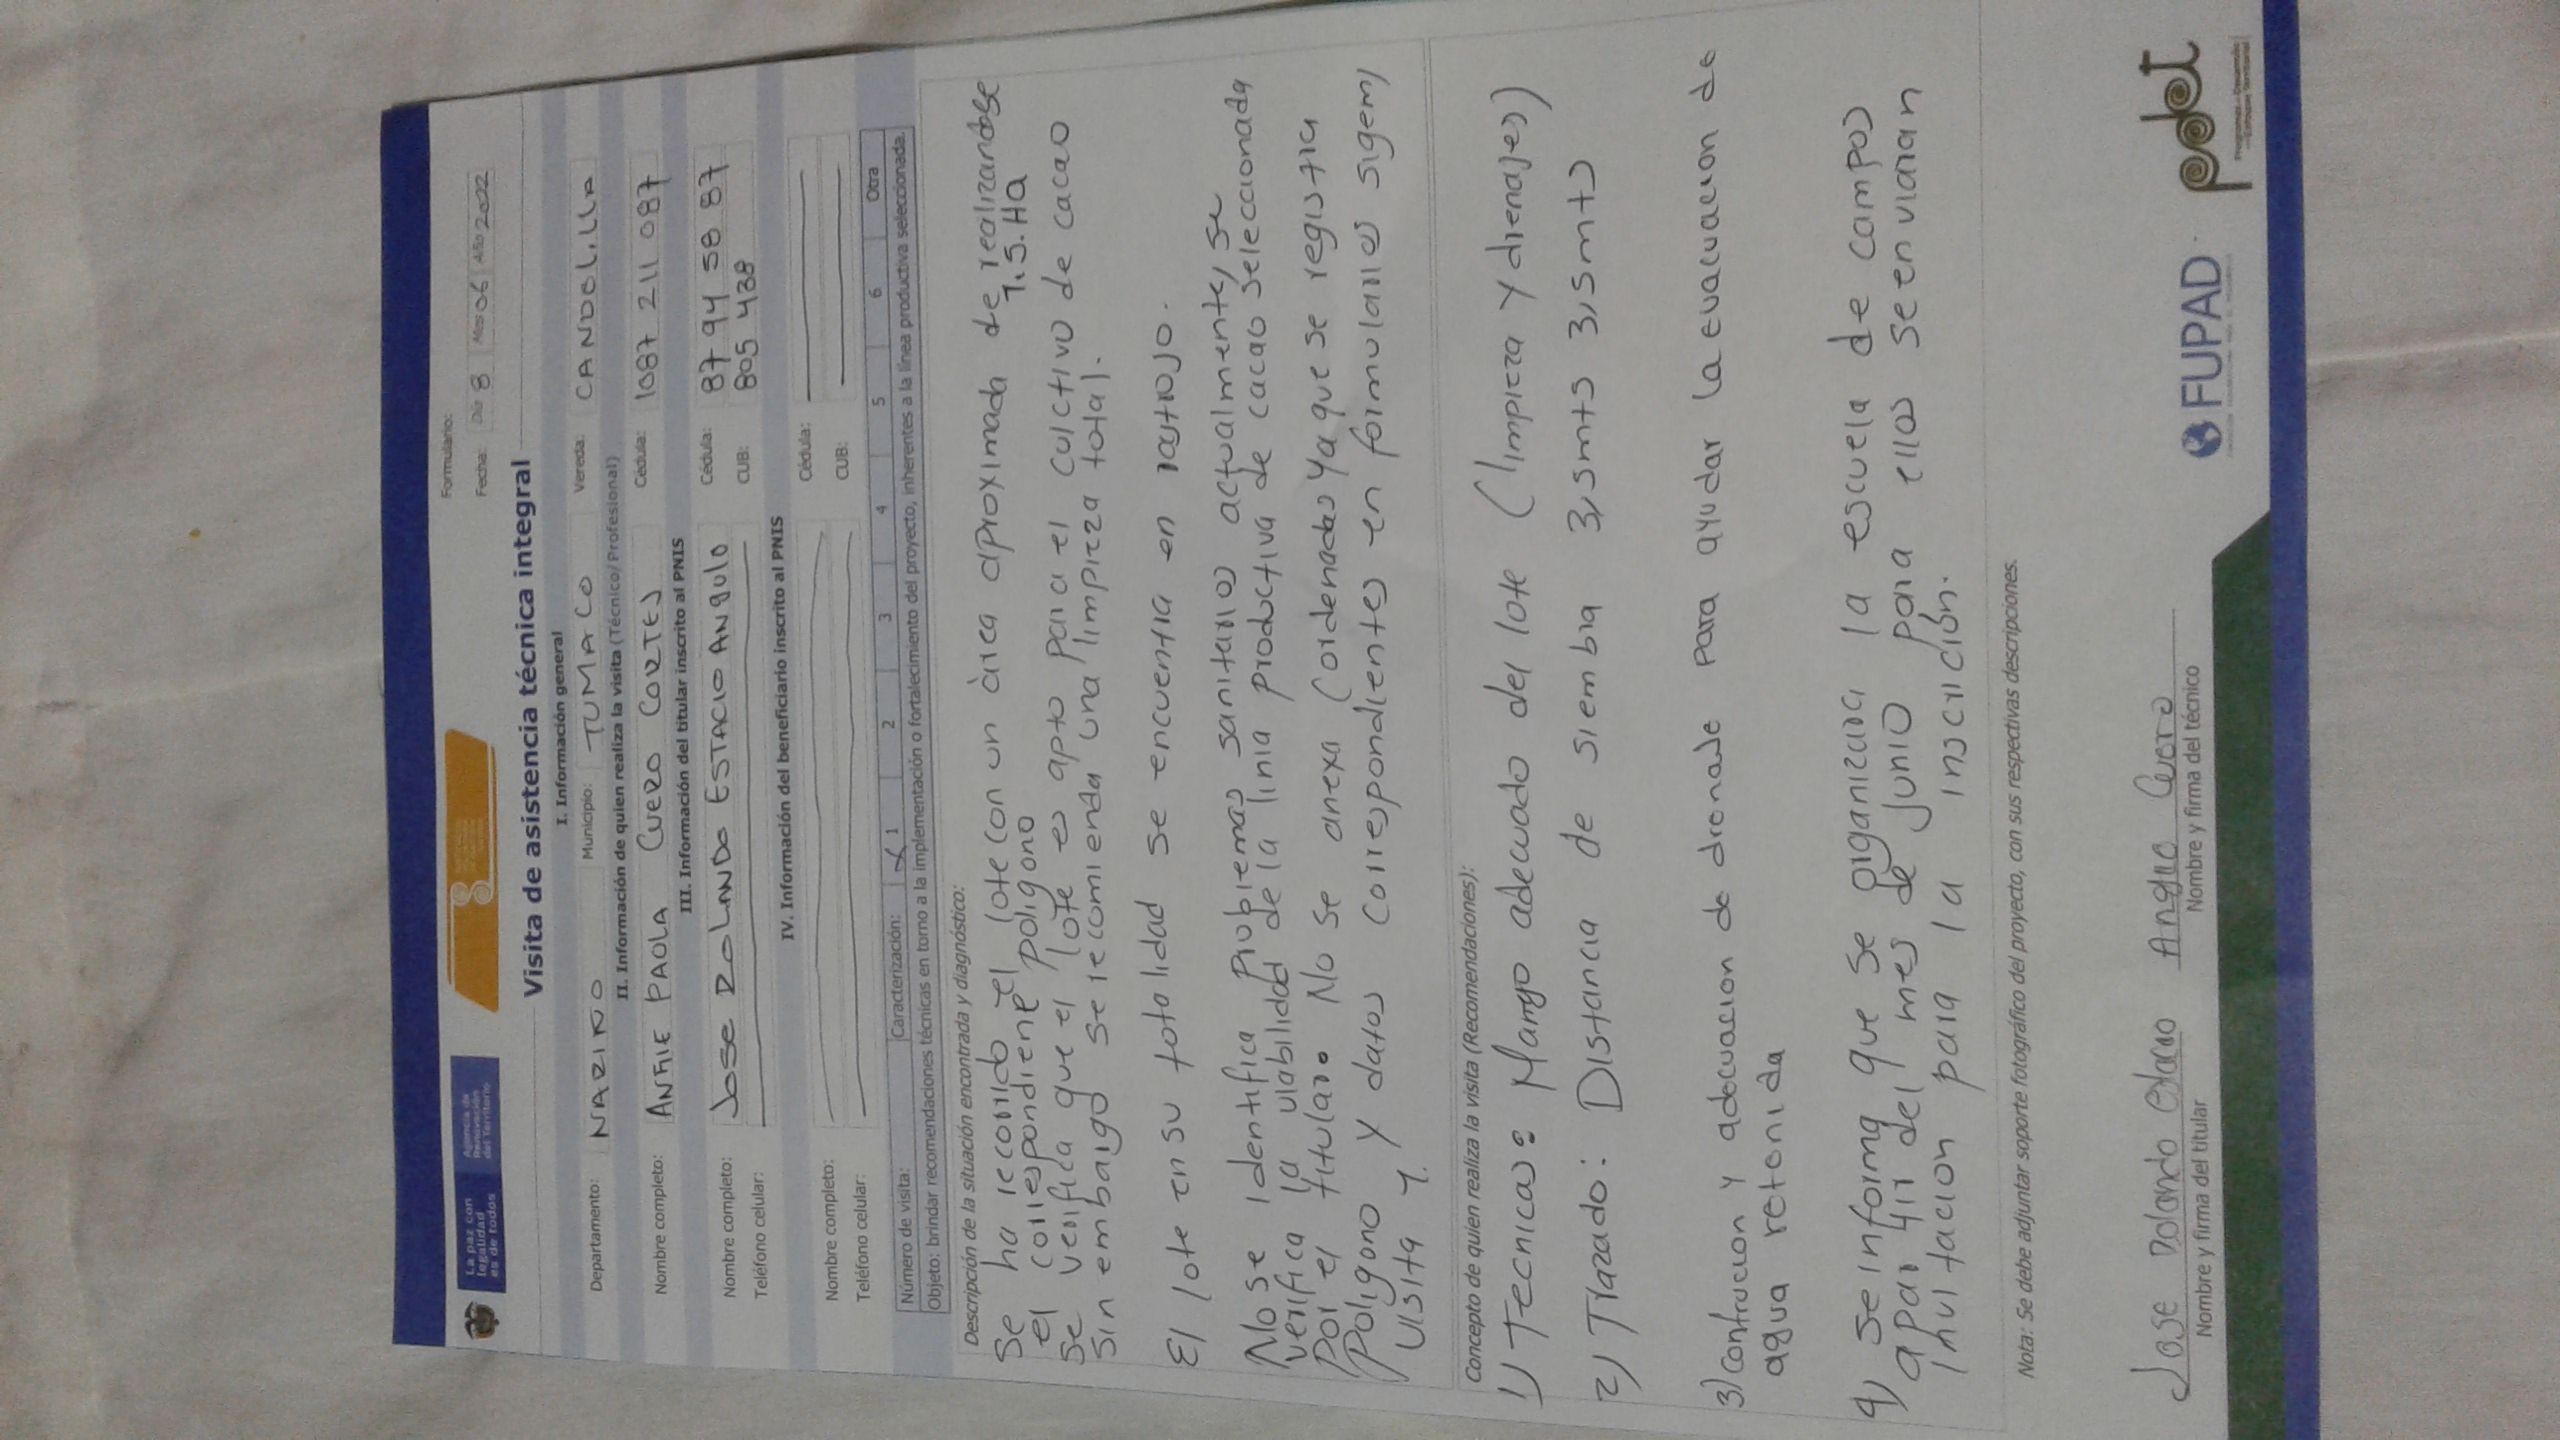 La paz con
legalidad
es de todos
Agencia de
Renovación
del Territorio
Formulario:
Fecha: Día 8 Mes 06 Año 2022
Visita de asistencia técnica integral
I. Información general
Departamento: NARIÑO Municipio: TUMACO Vereda: CANDELILLA
II. Información de quien realiza la visita (Técnico/ Profesional)
Nombre completo: ANGIE PAOLA CUERO CORTES Cédula: 1087 211 087
III. Información del titular inscrito al PNIS
Nombre completo: JOSE ROLANDO ESTACIO ANGULO Cédula: 87 94 58 87
Teléfono celular: CUB: 805 438
IV. Información del beneficiario inscrito al PNIS
Nombre completo: Cédula:
Teléfono celular: CUB:
Número de visita: Caracterización: X 1 2 3 4 5 6 Otra
Objeto: brindar recomendaciones técnicas en torno a la implementación o fortalecimiento del proyecto, inherentes a la línea productiva seleccionada.
Descripción de la situación encontrada y diagnóstico:
Se ha recorrido el lote con un área aproximada de realizandose
el correspondiene poligono 1.5. Ha
Se verifica que el lote es apto para el cultivo de cacao
Sin embargo se recomienda una limpieza total).
El lote en su totalidad se encuentra en rastrojo.
No se identifica problemas sanitarios actualmente, se
verifica la viabilidad de la linia productiva de cacao seleccionada
por el titular. No se anexa coordenadas Ya que se registra
poligono Y datos correspondientes en formularios sigem,
visita 1.
Concepto de quien realiza la visita (Recomendaciones):
1) Tecnicas: Manejo adecuado del lote (limpieza y drenajes)
2) Trazado: Distancia de siembra 3,5mts 3,5mts
3) contrucion y adecuacion de dronaJe para ayudar la evacuacion de
agua retenida
4) Se informa que se organizara la escuela de campos
apartir del mes de Junio para ellos se enviaran
invitacion para la inscricion.
Nota: Se debe adjuntar soporte fotográfico del proyecto, con sus respectivas descripciones.
Jose Rolando Estacio Angie Cuero
Nombre y firma del titular Nombre y firma del técnico
FUPAD
pdet